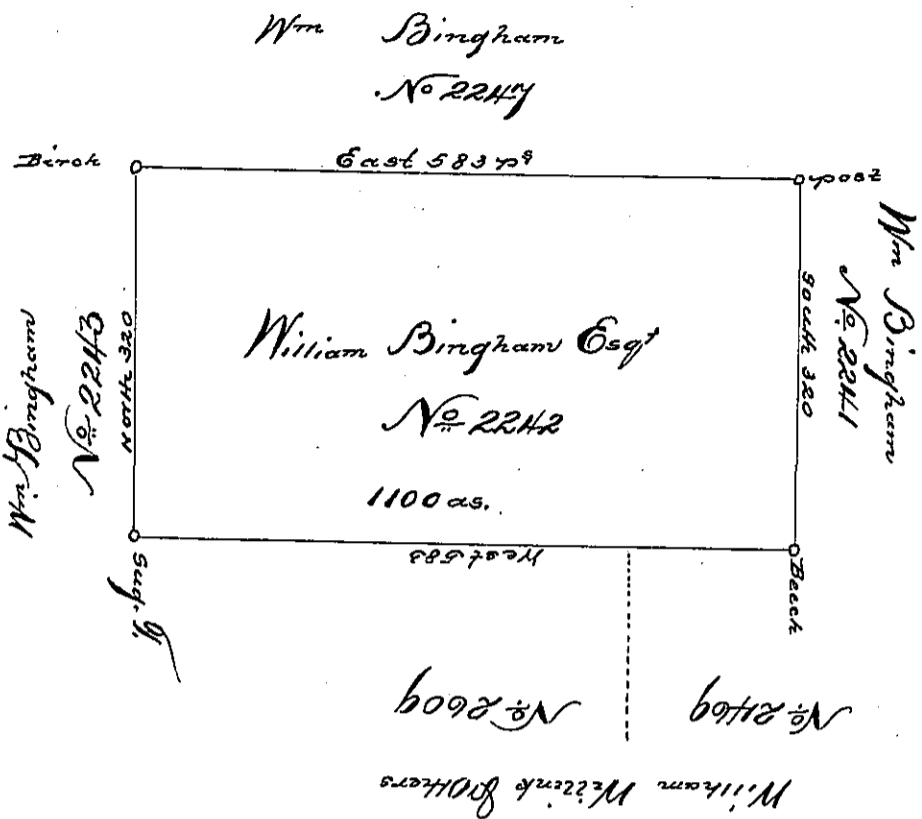 Wm Bingham
No 2247
Birch
East 583 ps
post
Wm Bingham
No 2243
North 320
William Bingham Esqr
No 2242
1100 as.
South 320
No 2241
Wm Bingham
West 583
Sug. T.
Beech
No 2609
No 2469
William Willink & Others